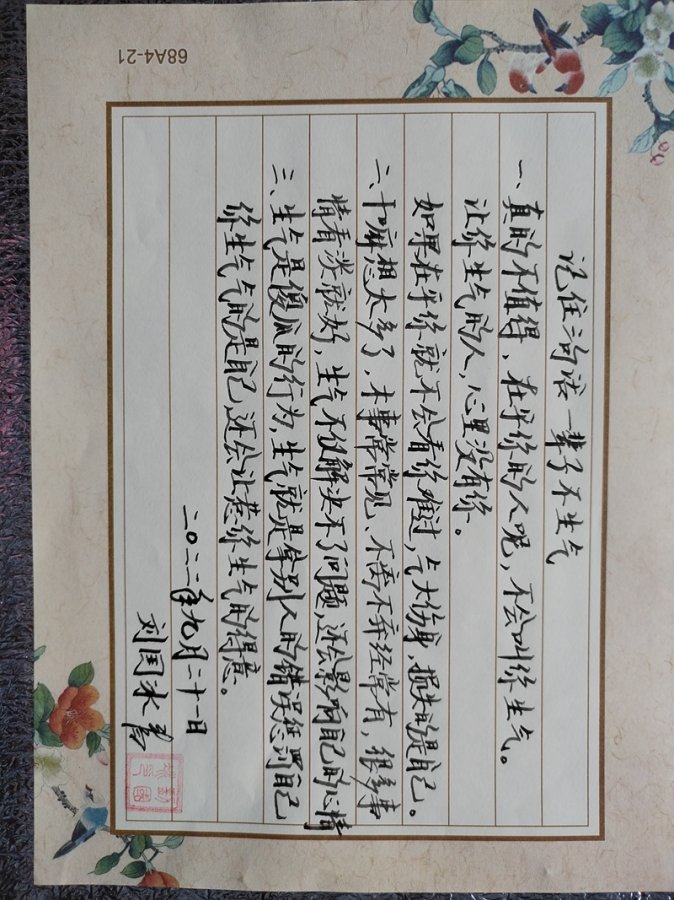 记住三句话一辈子不生气
一、真的不值得，在乎你的人呢，不会叫你生气。
让你生气的人，心里没有你。
如果在乎你就不会看你难过，气大伤身，损失的是自己。
二、干嘛想太多了，事常常见、不弃经常有，很多事
情看淡就好，生气不仅解决不了问题，还会影响自己的心情
三、生气是傻瓜的行为，生气就是拿别人的错误惩罚自己
你生气气的是自己，还会让惹你生气的得意。
二〇二二年九月二十一日
刘国冰书
68A4-21